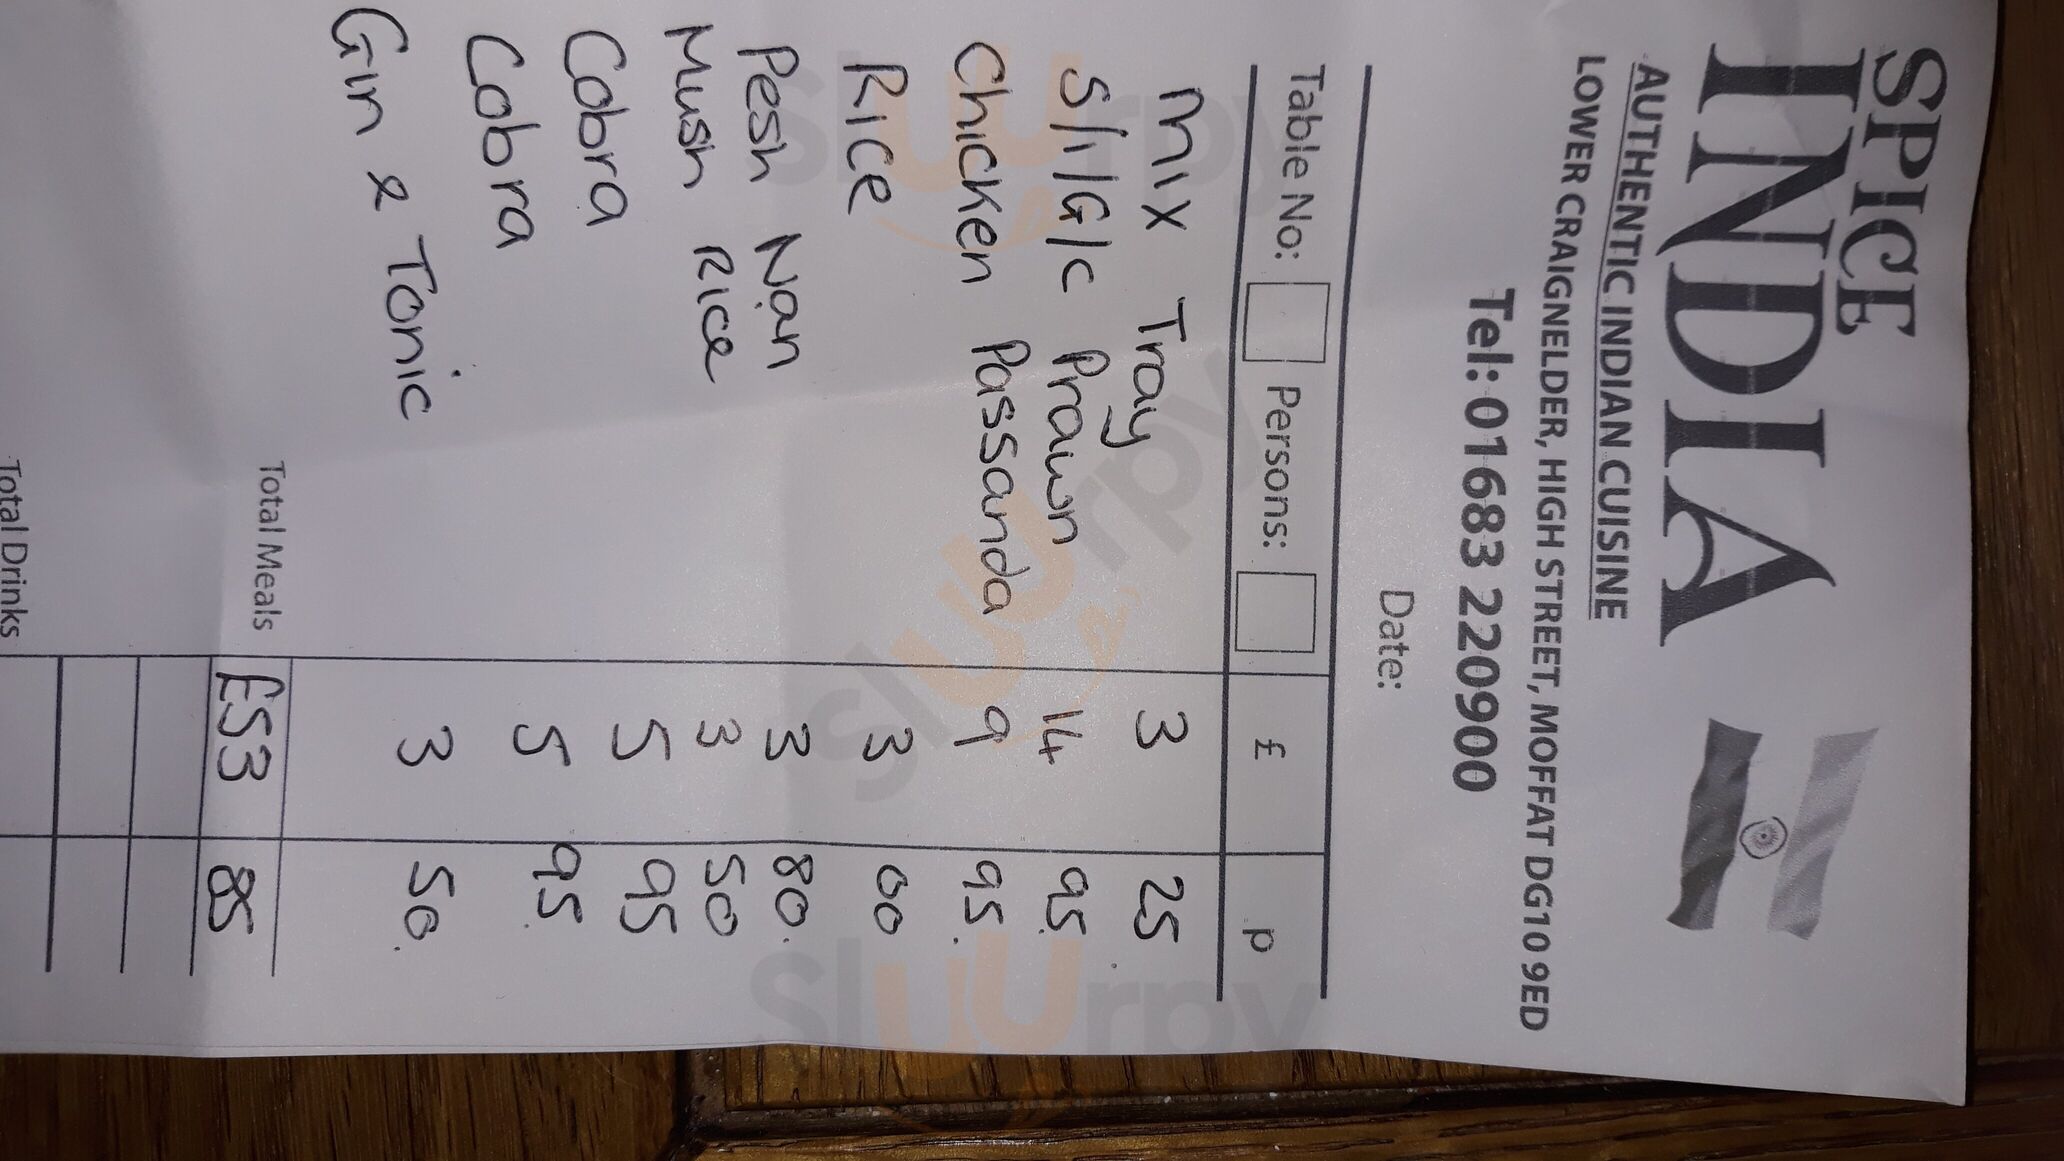 SPICE
INDIA
AUTHENTIC INDIAN CUISINE
LOWER CRAIGNELDER, HIGH STREET, MOFFAT DG10 9ED
Tel: 01683 220900
Date:
Table No: Persons: £ p
Mix Tray 3 25
S/I/G/C Prawn 14 95
Chicken Passanda 9 95
Rice 3 00
Pesh Nan 3 80
Mush Rice 3 50
Cobra 5 95
Cobra 5 95
Gin & Tonic 3 50
Total Meals £53 85
Total Drinks
slUUrpy
slUUrpy
slUUrpy